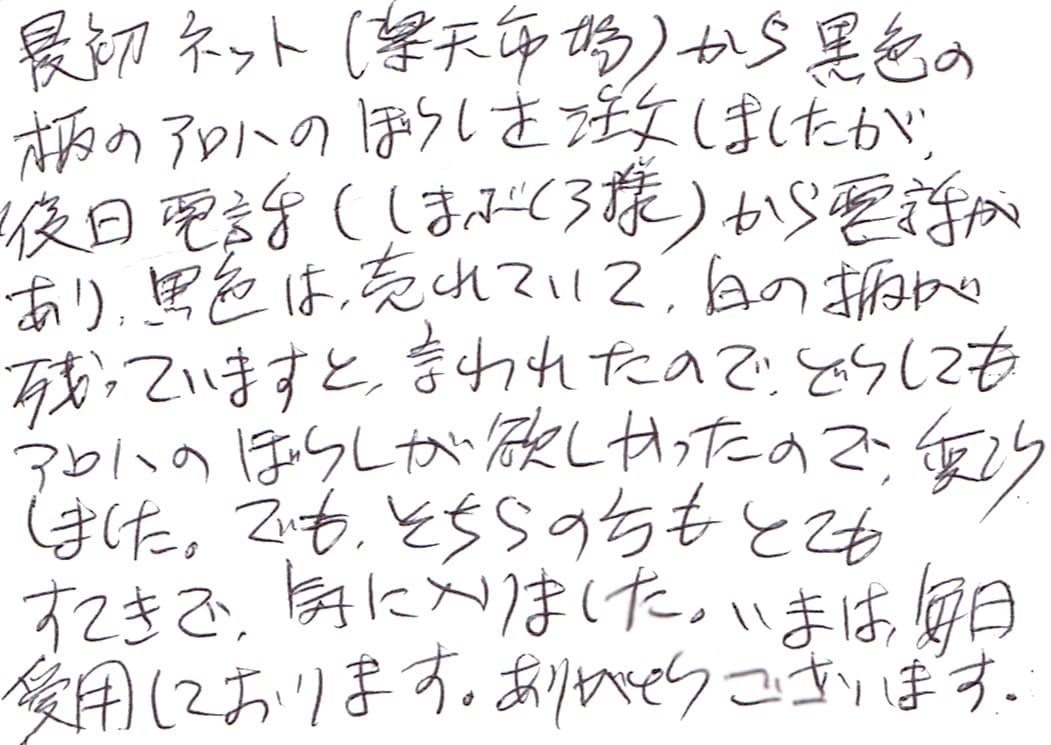 最初ネット(楽天市場)から黒色の
柄のアロハのぼうしを注文しましたが、
後日電話(しまぶくろ様)から電話が
あり、黒色は、売れていて、白の柄が
残っていますと、言われたので、どうしても
アロハのぼうしが欲しかったので、変こう
しました。でも、そちらの方もとても
すてきで、気に入りました。いまは、毎日
愛用しております。ありがとうございます。